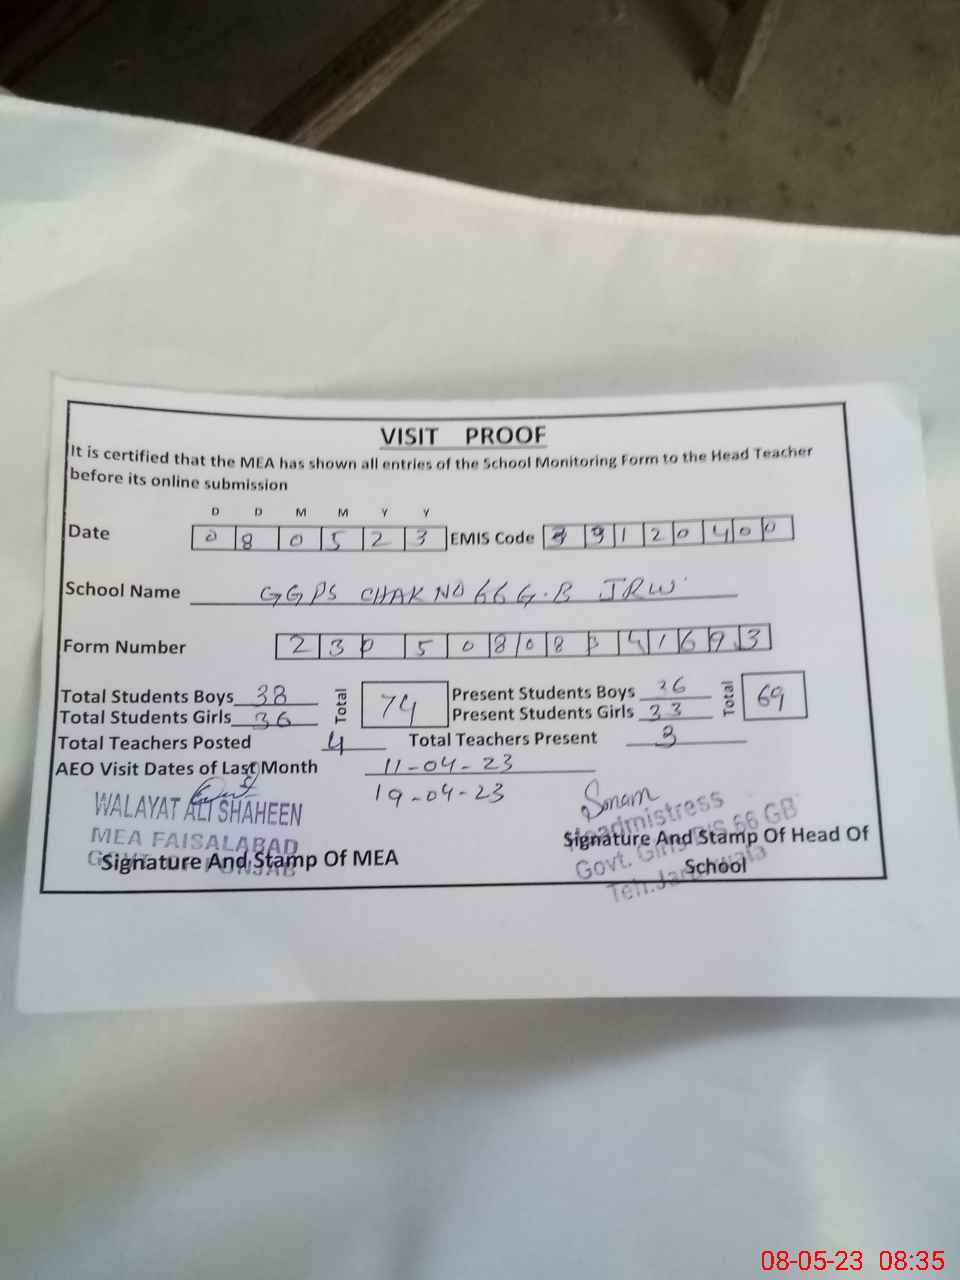 VISIT PROOF
It is certified that the MEA has shown all entries of the School Monitoring Form to the Head Teacher
before its online submission
D D M M Y Y
Date 0 8 0 5 2 3 EMIS Code 3 3 1 2 0 4 0 0
School Name GGPS CHAK NO 66 G.B JRW
Form Number 2 3 0 5 0 8 0 8 3 4 1 6 9 3
Total Students Boys 38 Total 74 Present Students Boys 36 Total 69
Total Students Girls 36 Present Students Girls 33
Total Teachers Posted 4 Total Teachers Present 3
AEO Visit Dates of Last Month 11-04-23
19-04-23
WALAYAT ALI SHAHEEN
MEA FAISALABAD
PUNJAB
Signature And Stamp Of MEA
Sonam
Headmistress
Govt. Girls P/S 66 GB
Teh. Jaranwala
Signature And Stamp Of Head Of
School
08-05-23 08:35